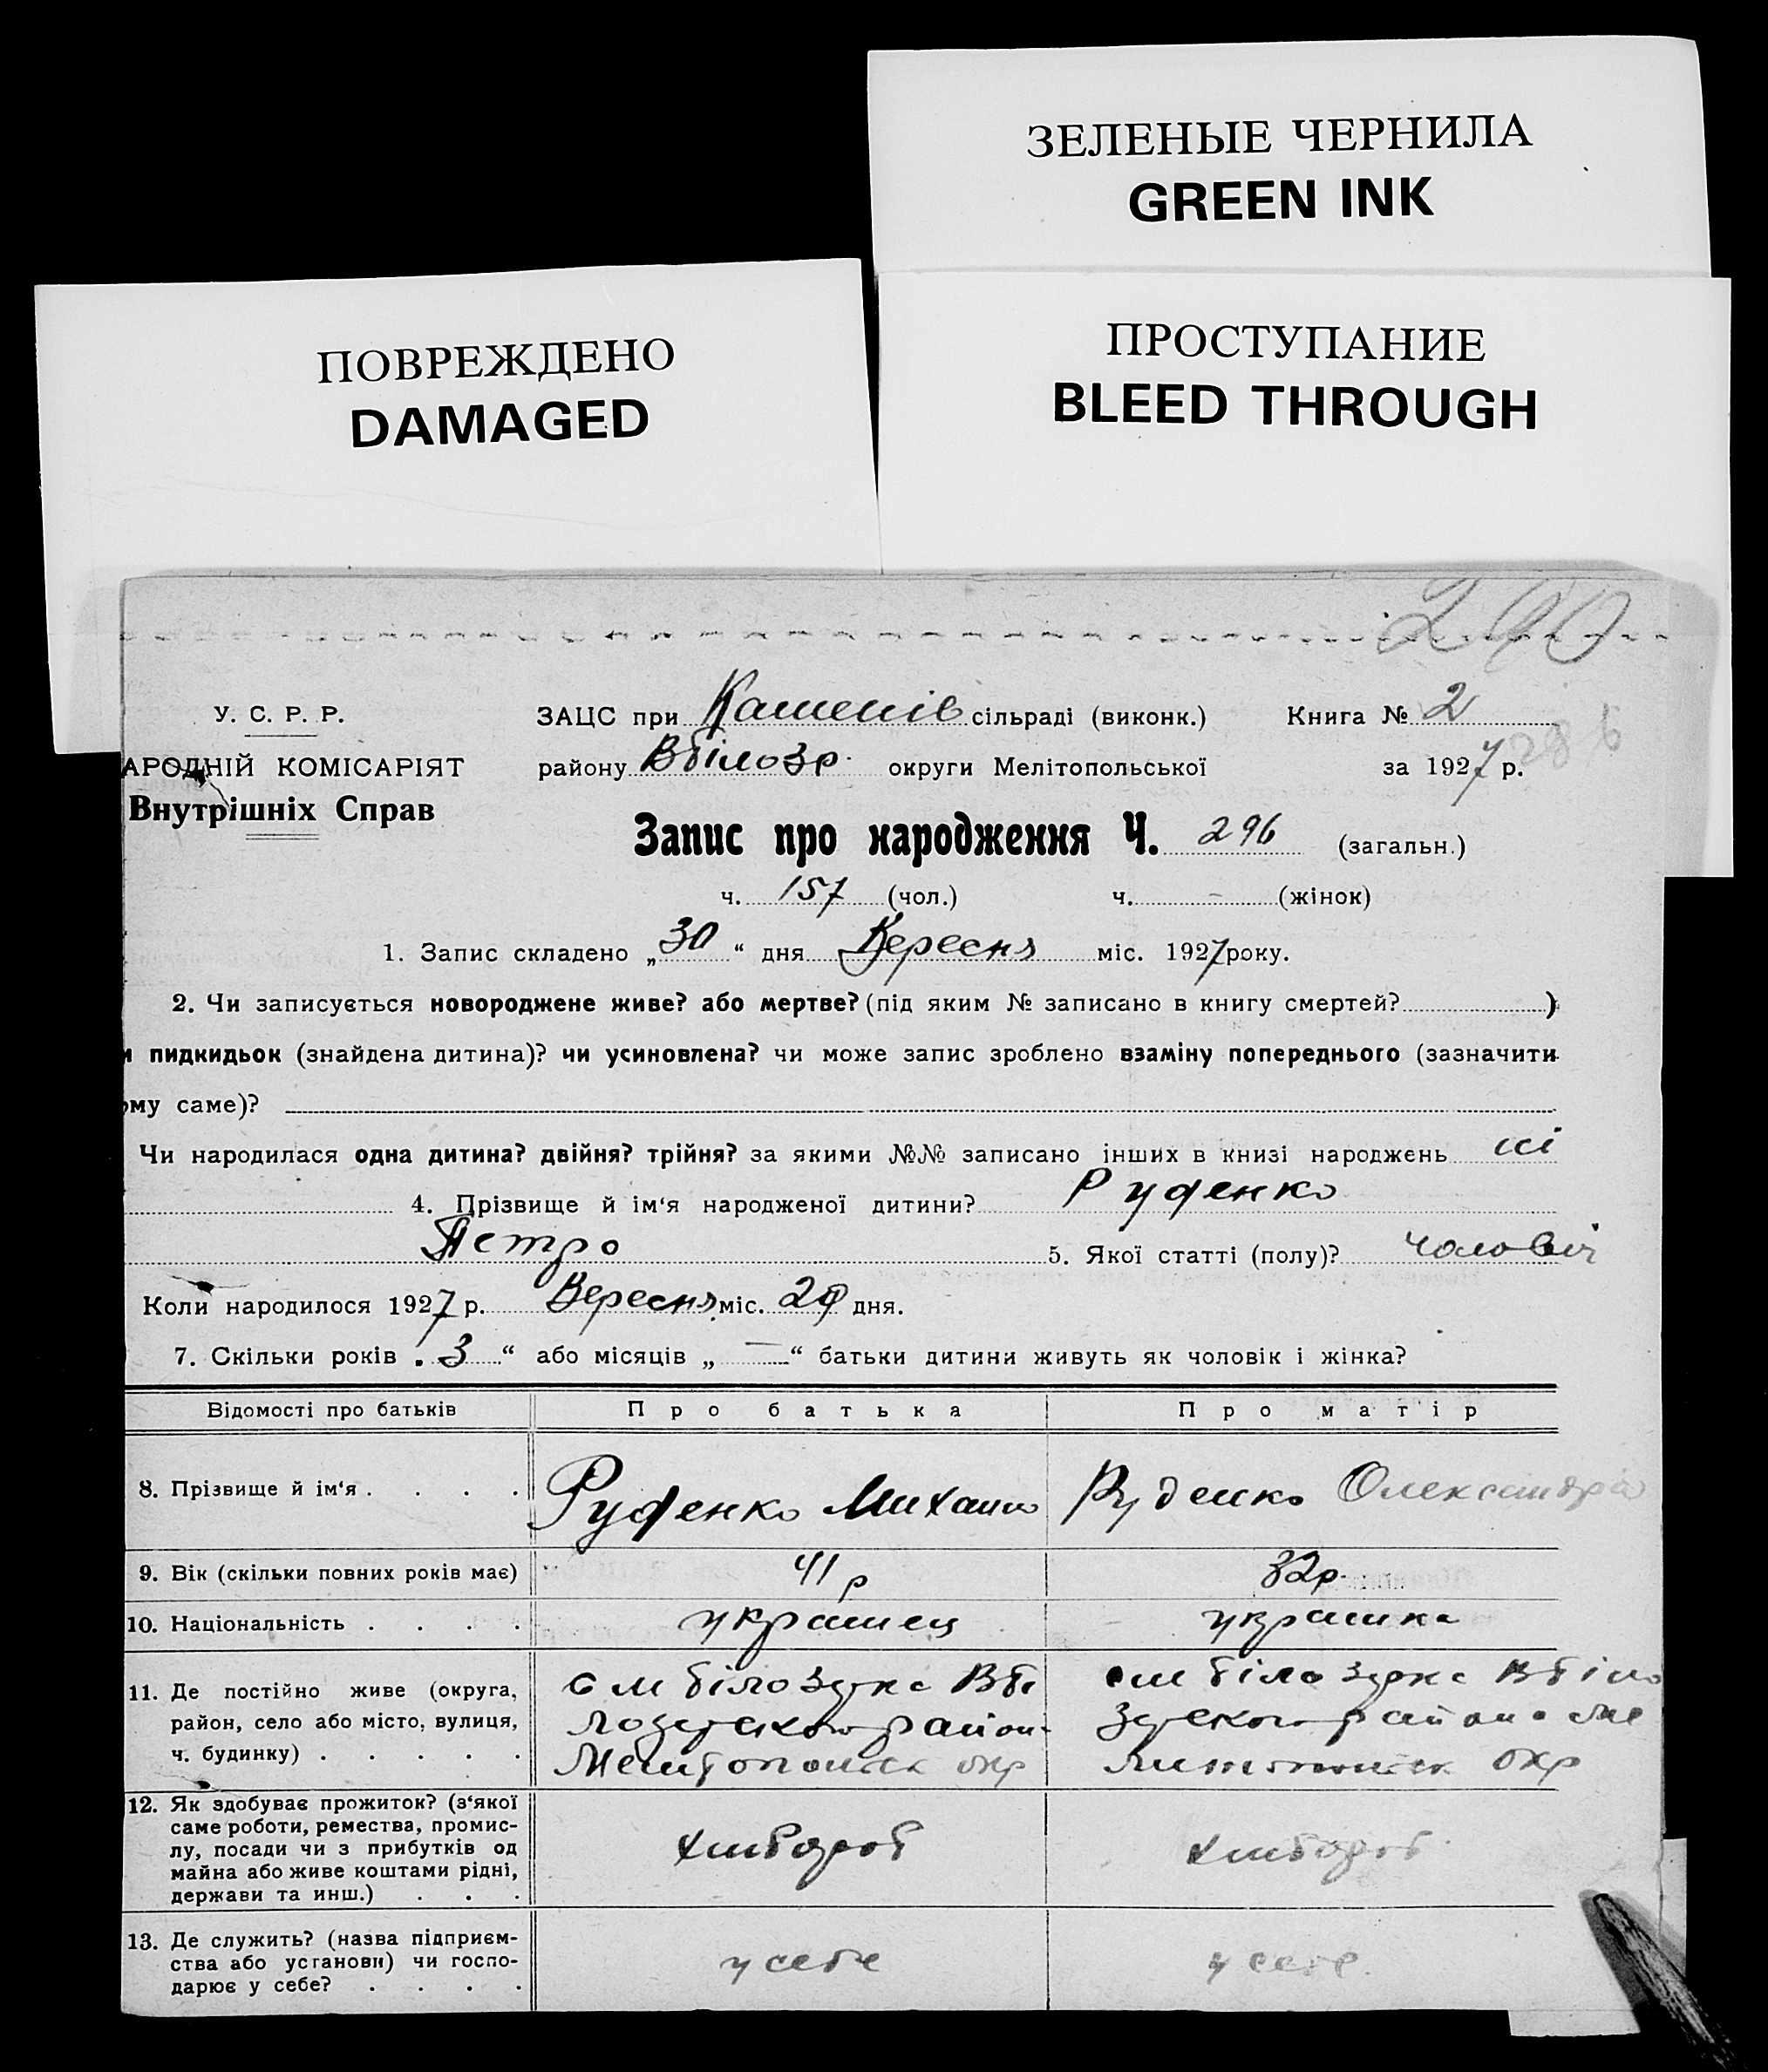 ЗЕЛЕНЫЕ ЧЕРНИЛА
GREEN INK
ПОВРЕЖДЕНО
DAMAGED
ПРОСТУПАНИЕ
BLEED THROUGH
290
У. С. Р. Р.
ЗАЦС при сільраді (виконк.) Книга № 2
АРОДНІЙ КОМІСАРІЯТ
району Вбілозр. округи Мелітопольської за 1927 р.
286
Внутрішніх Справ
Запис про народження Ч. 296 (загальн.)
ч. 157 (чол.) ч. - (жінок)
1. Запис складено „30“ дня Вересня міс. 1927 року.
2. Чи записується новороджене живе? або мертве? (під яким № записано в книгу смертей? )
и пидкидьок (знайдена дитина)? чи усиновлена? чи може запис зроблено взаміну попереднього (зазначити
ому саме)?
Чи народилася одна дитина? двійня? трійня? за якими №№ записано інших в книзі народжень
4. Прізвище й ім‘я народженої дитини? Руденко
Петро 5. Якої статті (полу)? чоловіч
Коли народилося 1927 р. Вересня міс. дня.
7. Скільки років „3“ або місяців „—“ батьки дитини живуть як чоловік і жінка?
Відомості про батьків Про батька Про матір
8. Прізвище й ім‘я . . . . Руденко Михайло Руденко Олександра
9. Вік (скільки повних років має) 41 р 32 р.
10. Національність . . . . українец українка
11. Де постійно живе (округа, с м білозурка Вбі с м білозурка Вбіло
район, село або місто, вулиця, лозерского район зерского району Ме
ч. будинку) . . . . . Мелитопольск окр литопольск окр
12. Як здобуває прожиток? (з‘якої
саме роботи, ремества, промис-
лу, посади чи з прибутків од хлібороб хлібороб
майна або живе коштами рідні,
держави та инш.) . . .
13. Де служить? (назва підприєм-
ства або установи) чи госпо- у себе у себе
дарює у себе? . . . .